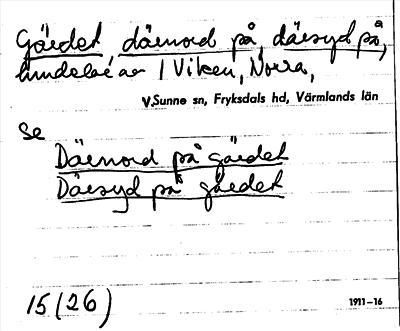 Gärdet, därnord på, därsyd på,
hundelse av / Viken, Norra,
V.Sunne sn, Fryksdals hd, Värmlands län
se
Därnord på gärdet
Därsyd på gärdet
15 (26)
1911-16